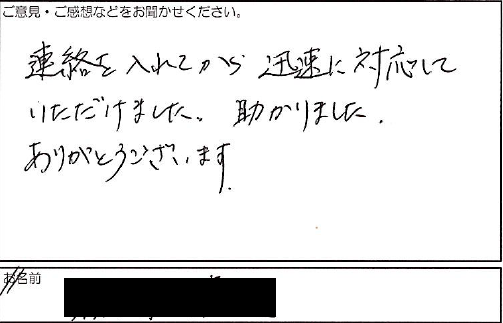 ご意見・ご感想などをお聞かせください。
連絡を入れてから 迅速に対応して
いただけました。助かりました.
ありがとうございます.
お名前